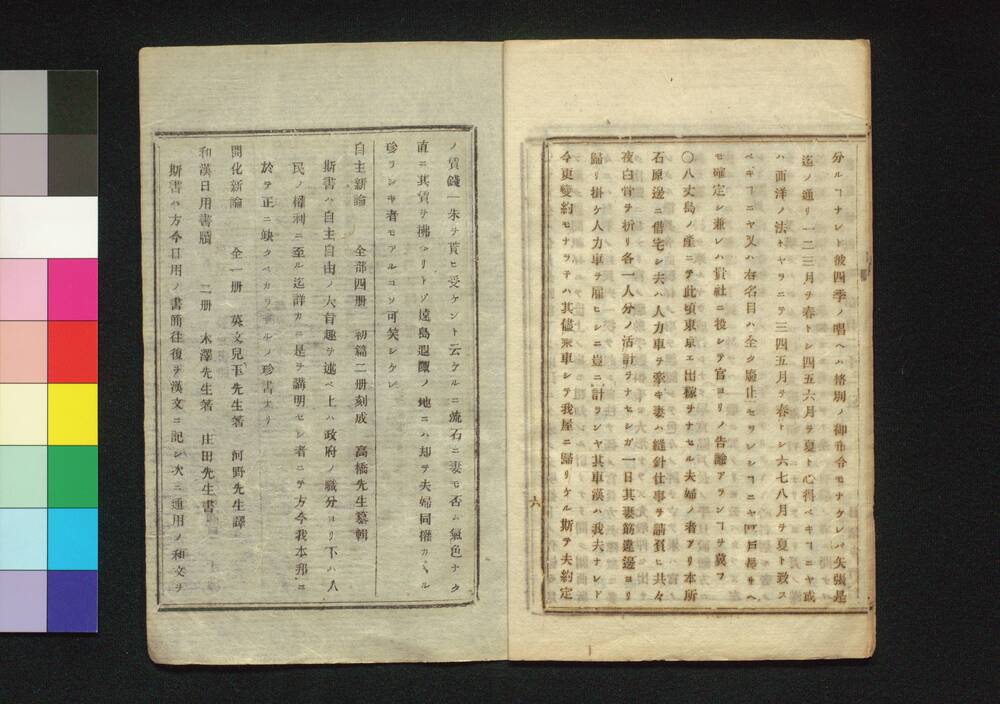 分ルヿナレド彼四季ノ唱ヘハ格別ノ御布令モナケレバ矢張是
迄ノ通リ一二三月ヲ春トシ四五六月ヲ夏ト心得ベキヿニヤ或
ハ西洋ノ法ヤウニテ三四五月ヲ春トシ六七八月ヲ夏ト致ス
ベキヿニヤ又ハ右名目ハ全ク廢止セラレシヿニヤ
セ確定シ兼レハ貴社ニ投シテ官ヨリノ告諭アランヿヲ冀フ
〇八丈島ノ産ニテ此頃東京エ出稼ヲナセル夫婦ノ者アリ本所
石原邊ニ借宅シ夫ハ人力車ヲ牽キ妻ハ縫針仕事ヲ請負ヒ共々
夜白骨ヲ折リ各一人分ノ活計ヲナセシガ一日其妻筋違邊ヨリ
歸リ掛ケ人力車ヲ雇ヒシニ豈ニ計ランヤ其車漢ハ我夫ナレド
今更變約モナラテハ其儘乘車シテ我屋ニ歸リケル斯テ夫約定
六
ノ賃錢一朱ヲ貰ヒ受ケント云ケルニ流石ニ妻モ否ム氣色ナク
直ニ其賃ヲ拂ヘリトゾ遠島遐陬ノ地ニハ却テ夫婦同權カヽル
珍ラシキ者モアルコソ可笑シケレ
自主新論 全部四册 初篇二册刻成 高橋先生纂輯
斯書ハ自主自由ノ大旨趣ヲ述ベ上ハ政府ノ職分ヨリ下ハ人
民ノ權利ニ至ル迄詳カニ是ヲ講明セシ者ニテ方今我本邦ニ
於テ正ニ缺クベカラザルノ珍書ナリ
開化新論 全一册 英文兒玉先生著 河野先生譯
和漢日用書牘 二册 木澤先生著 庄田先生書
斯書ハ方今日用ノ書簡往復ヲ漢文ニ記シ次ニ通用ノ和文ヲ